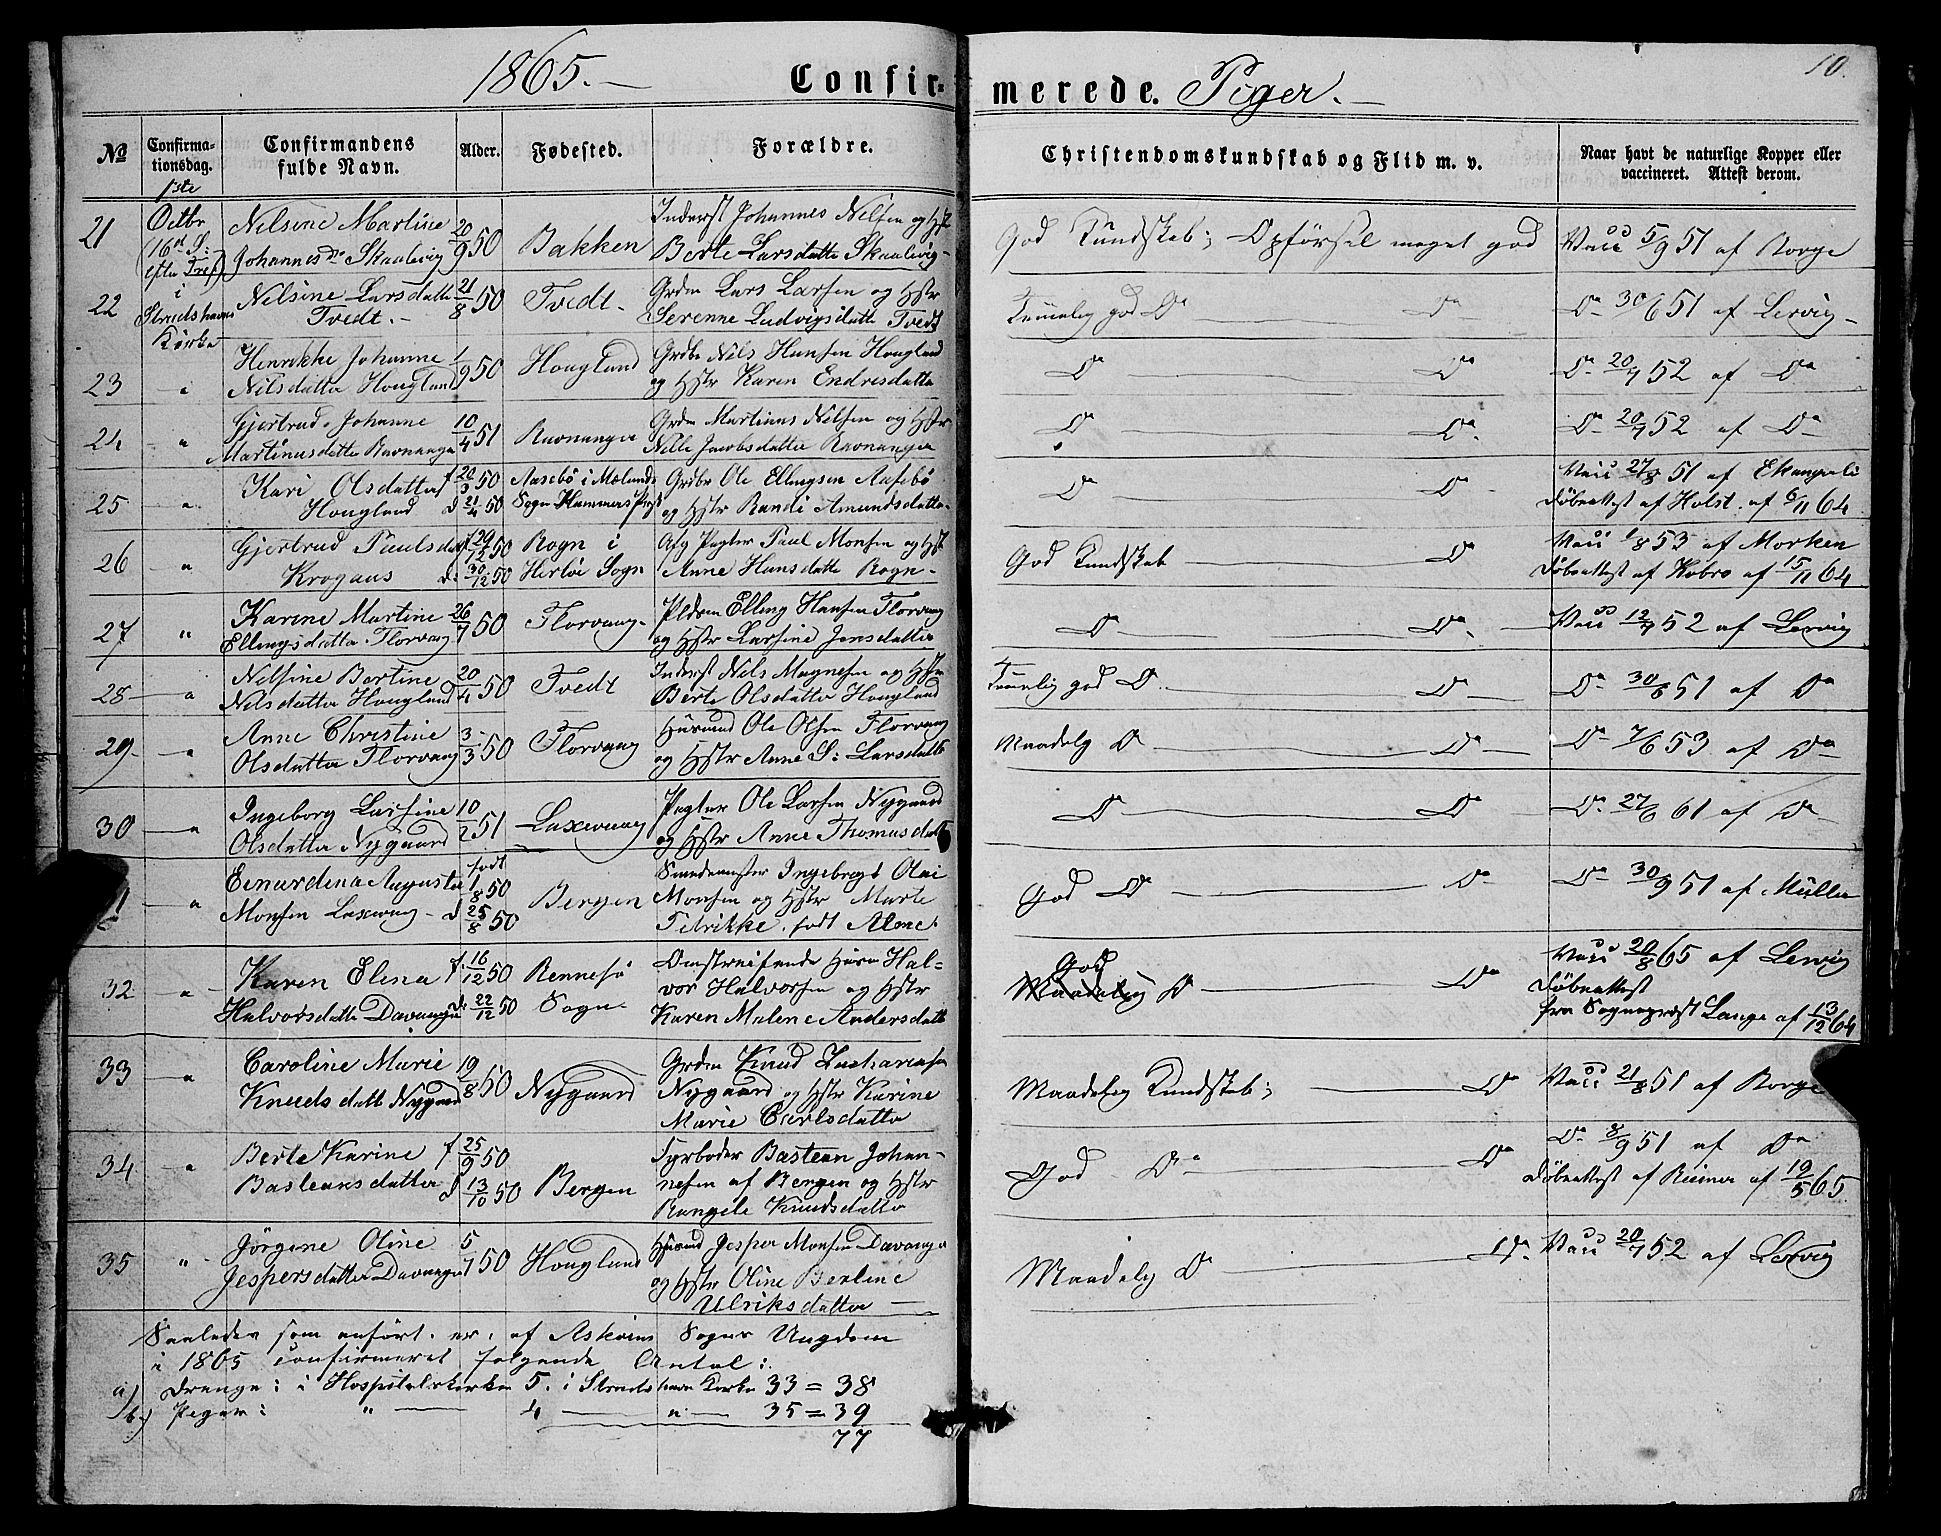 1865.
Confir-
merede. Piger.
10.
No
Confirma-
tionsdag.
Confirmandens
fulde Navn.
Alder.
Fødested.
Forældre.
Christendomskundskab og Flid m. v.
Naar havt de naturlige Kopper eller
vaccineret. Attest derom.
1ste
Octbr
(16de S:
efter Tref)
i
Strudshavns
Kirke
21
Nilsine Martine
Johannesdr Skaalevig
20/9 50
Bakken
Inderst Johannes Nilsen og Hstr
Berte Larsdatter Skaalevig
God Kundskab; Opførsel meget god
Vacc 5/9 51 af Borge
22
Nilsine Larsdatter
Tvedt.
21/8 50
Tvedt.
Grdm Lars Larsen og Hstr
Serenne Ludvigsdatter Tvedt
Temmelig god Do Do
Do 30/6 51 af Lervig
23 "
Henrikke Johanne
Nilsdatter Hougland
1/9 50
Hougland
Grdbr Nils Hansen Hougland
og Hstr Karen Endresdatter
Do Do
Do 20/7 52 af Do
24 "
Gjertrud Johanne
Martinusdatter Ravnanger
10/4 51
Ravnanger
Grdm Martinus Nilsen og Hstr
Nille Jacobsdatter Ravnanger
Do Do
Do 20/7 52 af Do
25 "
Kari Olsdatter
Hougland
f 20/3 50
d 21/4 50
Aasebø i Mælands
Sogn Hammers Pgd
Grdbr Ole Ellingsen Aasebø
og Hstr Randi Amundsdatter
Do Do
Vacc 27/8 51 af
Døbeattest af Holst af 6/11 64
26 "
Gjertrud Paulsdatter
Krogaas
f 29/12 50
d: 30/12 50
Rogn i
Herløe Sogn
Afg Pagter Paul Monsen og Hstr
Anne Hansdatter Rogn
God Kundskab Do
Vacc 1/8 53 af Morken
Døbeattest af Kobro af 15/11 64
27 "
Karine Martine
Ellingsdatter Florvaag
26/7 50
Florvaag
Pldsm Elling Hansen Florvaag
og Hstr Larsine Jensdatter
Do Do
Vacc 12/7 52 af Lervig
28 "
Nilsine Bertine
Nilsdatter Hougland
20/4 50
Tvedt
Inderst Nils Magnesen og Hstr
Berte Olsdatter Hougland
Temmelig god Do Do
Do 30/6 51 af Do
29 "
Anne Christine
Olsdatter Florvaag
3/3 50
Florvaag
Husmd Ole Olsen Florvaag
og Hstr Anne S: Larsdatter
Maadelig Do Do
Do 7/6 53 af Do
30 "
Ingeborg Larsine
Olsdatter Nygaard
10/2 51
Laxevaag
Pagter Ole Larsen Nygaard
og Hstr Anne Thomasdatter
Do Do
Do 27/6 61 af Do
"
Einardina Augusta
Monsen Laxevaag
født
1/8 50
d 25/8 50
Bergen
Smedemester Ingebregt Olai
Monsen og Hstr Marte
Fedrikke født
God Do Do
Do 30/9 51 af Müller
32 "
Karen Elena
Halvorsdatter Davanger
f. 16/12 50
d. 22/12 50
Rennesø
Sogn
Omstreifende Husm Hal-
vor Halvorsen og Hstr
Karen Malene Andersdatter
God
Maadelig Do Do
Vacc 20/8 65 af Lervig
Døbeattest
fra Sogneprest Lange af 13/12 64
33 "
Caroline Marie
Knudsdatter Nygaard
19/8 50
Nygaard
Grdm Knud Zachariasen
Nygaard og Hstr Karine
Marie Carlsdatter
Maadelig Kundskab; Do
Vacc 21/8 51 af Borge
34 "
Berte Karine
Basteansdatter
f 25/9 50
d 13/10 50
Bergen
Fyrbøder Bastean Johan-
nesen af Bergen og Hstr
Rangele Knudsdatter
God Do Do
Do 8/9 51 af Do
Døbeattest af Reimer af 19/5 65
35 "
Jörgine Oline
Jespersdatter Davanger
5/7 50
Hougland
Husmd Jesper Monsen Davanger
og Hstr Oline Berline
Ulriksdatter
Maadelig Do Do.
Vacc 20/7 52 af Lervig
Saaledes som anført. er. af Askøens Sogns Ungdom
i 1865 confirmeret følgende Antal:
a) Drenge: i Hospitalskirken 5. i Strudshavns Kirke 33 = 38
b) Piger: " 4 " 35 = 39
77